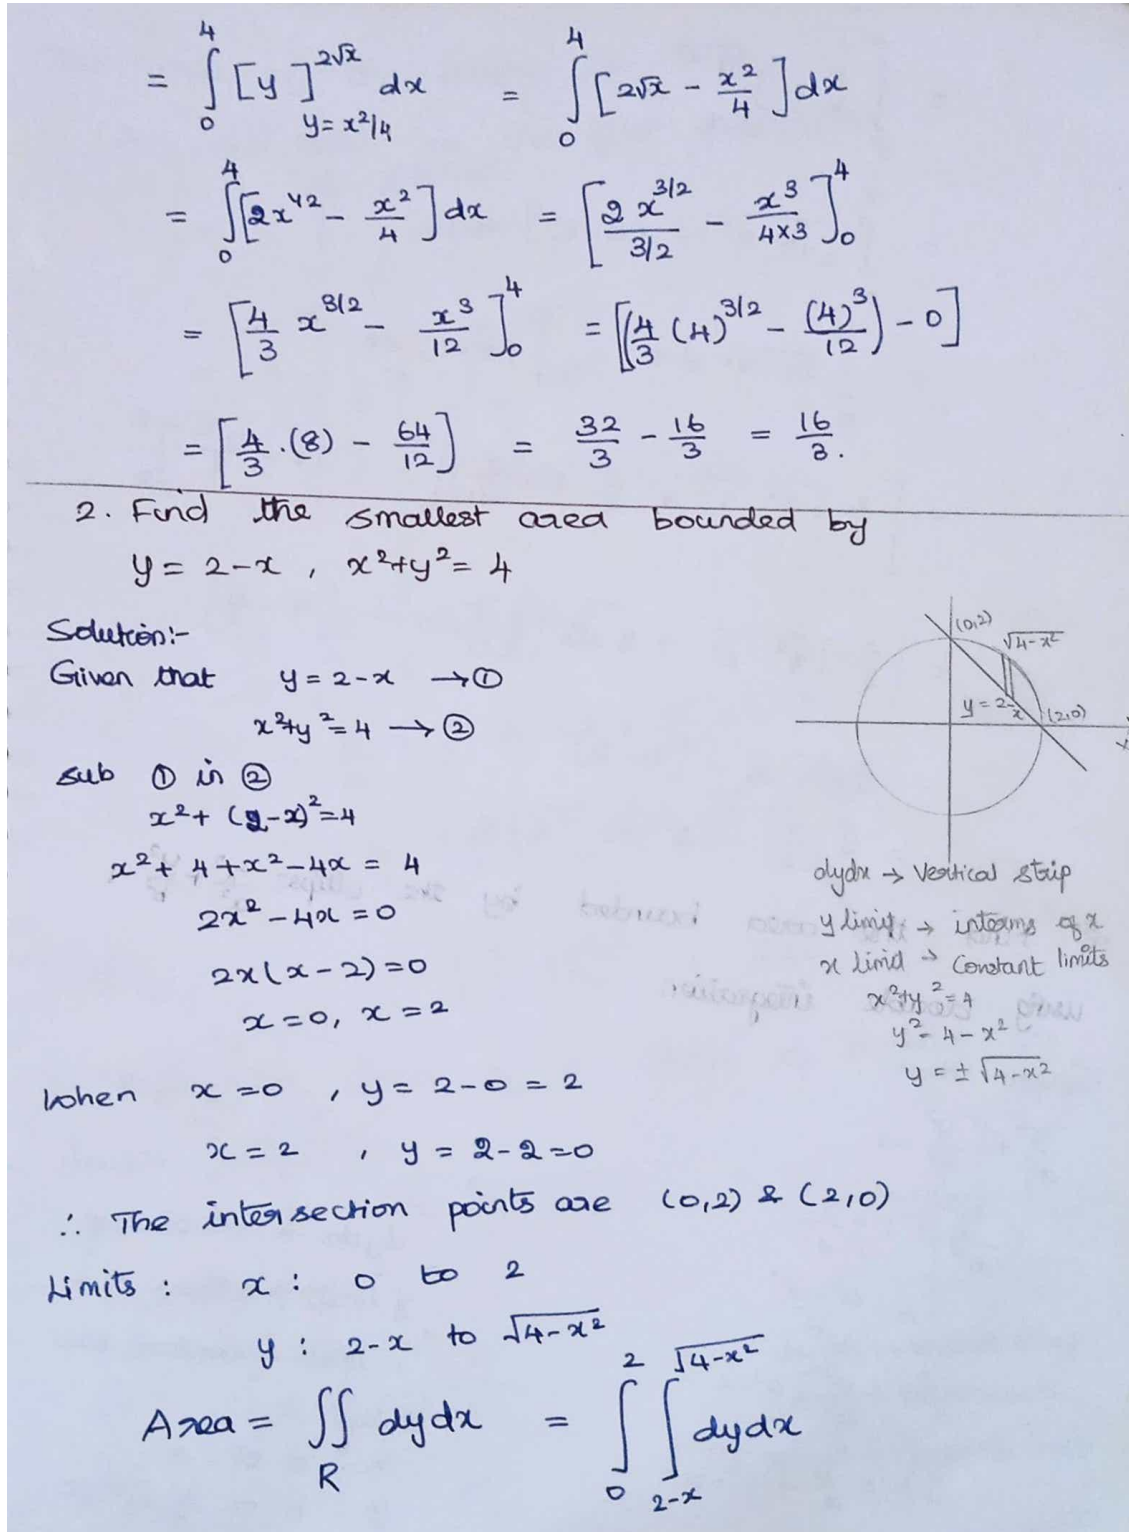 = ∫₀⁴ [y]^{2√x}_{y=x²/4} dx = ∫₀⁴ [2√x - x²/4] dx
= ∫₀⁴ [2x^{1/2} - x²/4] dx = [2x^{3/2}/(3/2) - x³/(4×3)]₀⁴
= [4/3 x^{3/2} - x³/12]₀⁴ = [(4/3 (4)^{3/2} - (4)³/12) - 0]
= [4/3 .(8) - 64/12] = 32/3 - 16/3 = 16/3.
2. Find the smallest area bounded by
y = 2-x , x²+y² = 4
Solution:-
Given that y = 2-x → ①
x²+y² = 4 → ②
sub ① in ②
x² + (2-x)² = 4
x² + 4 + x² - 4x = 4
2x² - 4x = 0
2x(x-2) = 0
x = 0, x = 2
When x = 0 , y = 2-0 = 2
x = 2 , y = 2-2 = 0
∴ The intersection points are (0,2) & (2,0)
Limits : x : 0 to 2
y : 2-x to √(4-x²)
Area = ∬_R dydx = ∫₀² ∫_{2-x}^{√(4-x²)} dydx
(0,2)
√(4-x²)
y = 2-x
(2,0)
x
dydx → Vertical strip
y limit → interms of x
x limit → Constant limits
x²+y² = 4
y² = 4-x²
y = ± √(4-x²)